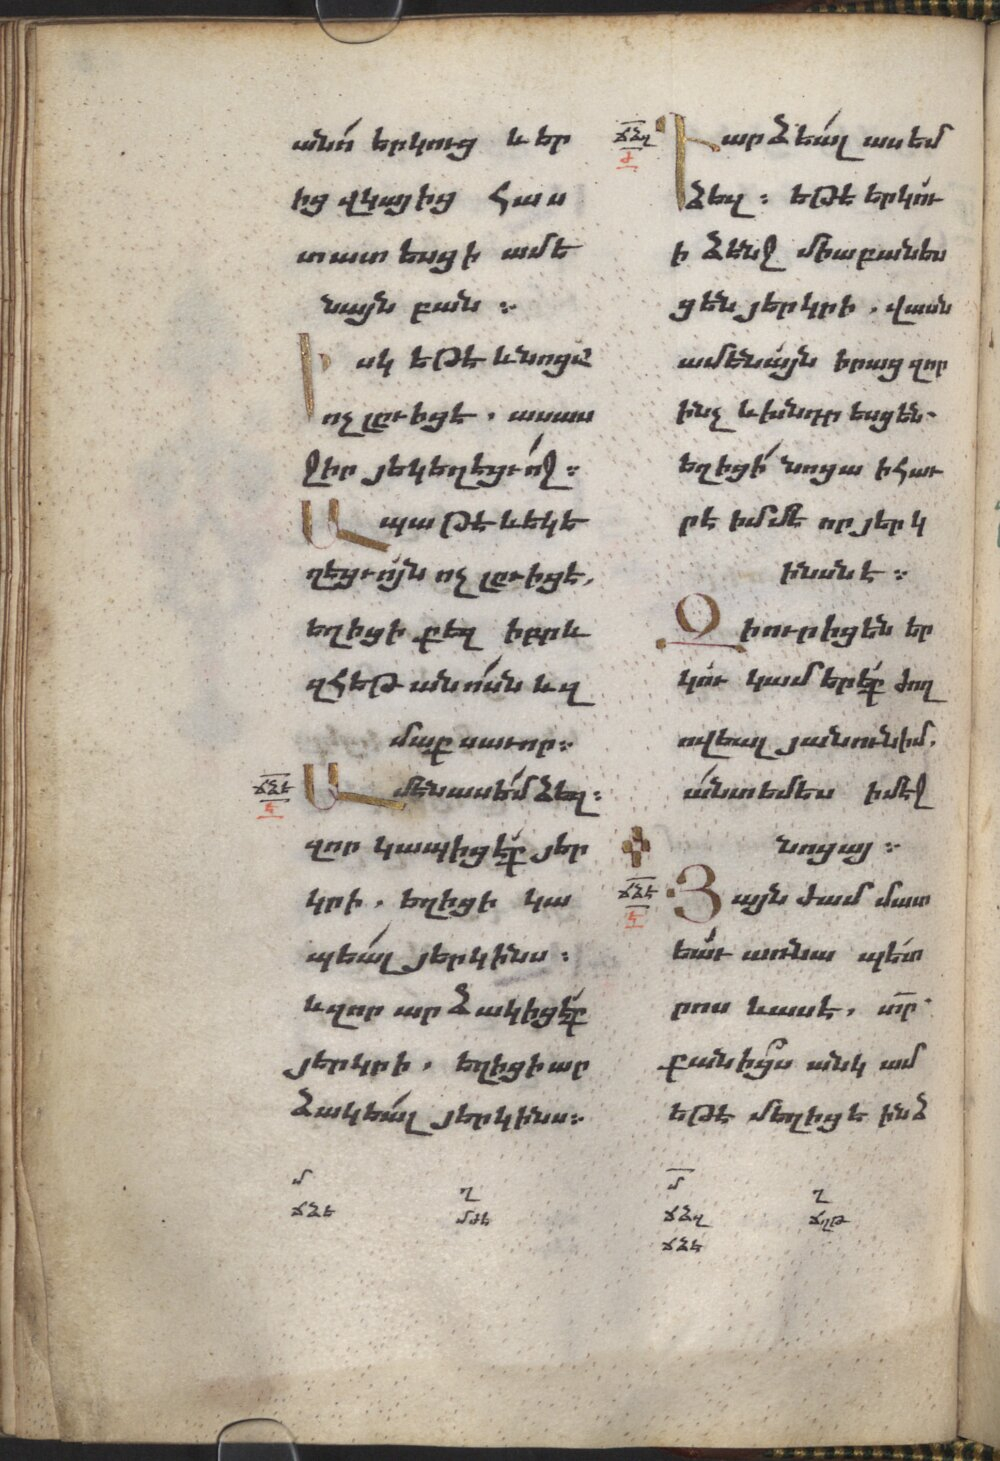 անո՛ երկուց և եր
ից վկայից հաս
տատեսցի ամե
նայն բան ։
Իսկ եթէ և նոցա
ոչ լըւիցէ . ասաս
ջիր յեկեղեցւո՛ջ ։
Ապա թէ և եկե
ղեցւոյն ոչ լըւիցէ,
եղիցի քեզ իբրև
զհեթանոսն և զ
մաքսաւոր։
ՃՁԵ Ամէն ասեմ ձեզ ։
Ե
զոր կապիցէք յեր
կրի . եղիցի կա
պեալ յերկինս ։
և զոր արձակիցէք
յերկրի . եղիցի ար
ձակեալ յերկինս։
Մ
ՃՁԵ
Ղ
ՄԺԵ
ՃՁԶ Դարձեալ ասեմ
Ժ
ձեզ ։ եթէ երկու
ի ձէնջ միաբանես
ցեն յերկրի . վասն
ամենայն իրաց զոր
ինչ և խնդրեսցեն
եղիցի՛ նոցա ի հաւ
րէ իմմէ որ յերկ
ինսն է ։
Զի ուր իցեն եր
կու կամ երեք ժող
ովեալ յանուն իմ.
անտ եմ ես ի մէջ
նոցայ ։
ՃՁԷ Յայն ժամ մատ
Ե
եաւ առ նա պետ
րոս և ասէ . տր
քանիցս անկամ
եթէ մեղիցէ ինձ
Մ
ՃՁԶ
ՃՁԷ
Ղ
ՃՂԹ